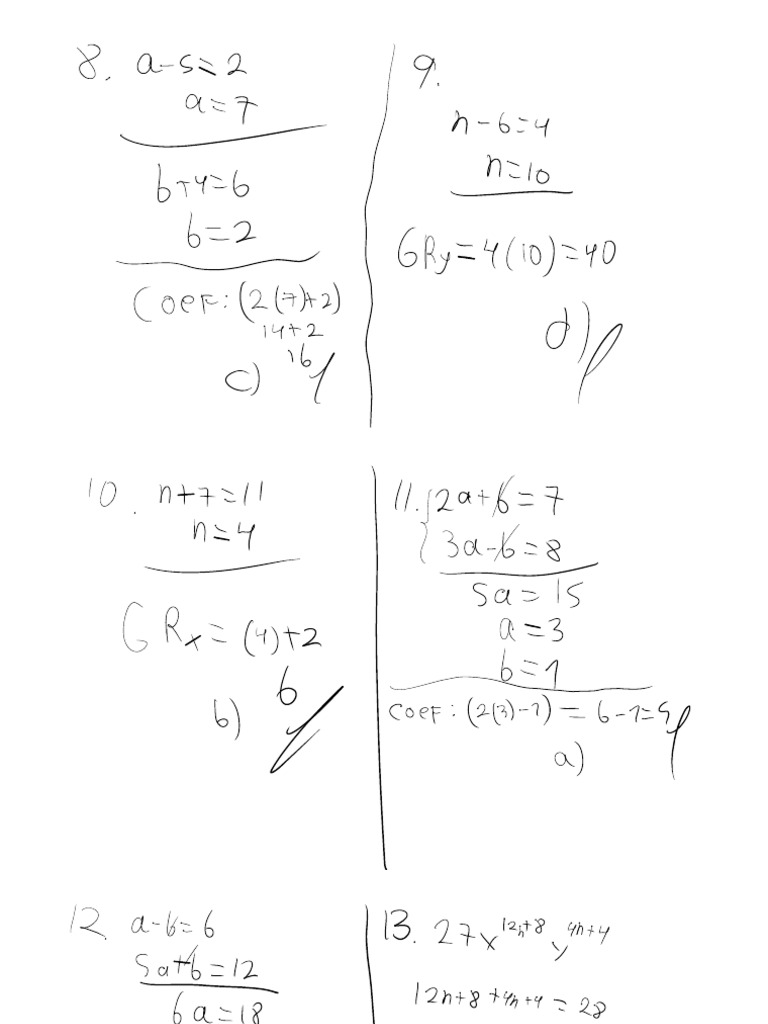 8. a-5=2
a=7
b+4=6
b=2
COEF: (2(7)+2)
14+2
16
c)
9.
n-6=4
n=10
GRy=4(10)=40
d)
10. n+7=11
n=4
GRx=(4)+2
6
b)
11. {2a+b=7
3a-b=8
5a=15
a=3
b=1
COEF: (2(3)-1) = 6-1=5
a)
12. a-b=6
5a+b=12
6a=18
13. 27x^{12n+8} y^{4n+4}
12n+8+4n+4=28